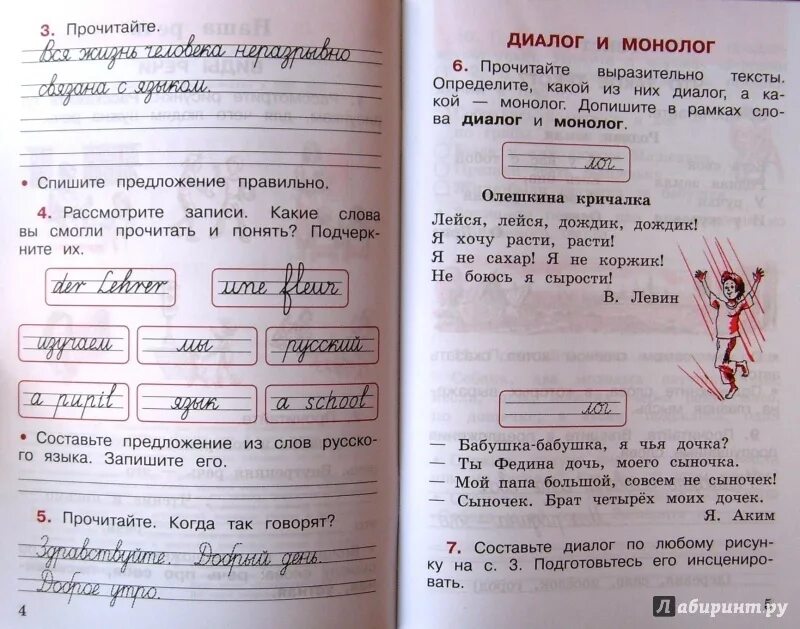 3. Прочитайте.
Вся жизнь человека неразрывно
связана с языком.
• Спишите предложение правильно.
4. Рассмотрите записи. Какие слова
вы смогли прочитать и понять? Подчерк-
ните их.
der Lehrer une fleur
изучаем мы русский
a pupil язык a school
• Составьте предложение из слов русско-
го языка. Запишите его.
5. Прочитайте. Когда так говорят?
Здравствуйте. Добрый день.
Доброе утро.
4
ДИАЛОГ И МОНОЛОГ
6. Прочитайте выразительно тексты.
Определите, какой из них диалог, а ка-
кой — монолог. Допишите в рамках сло-
ва диалог и монолог.
лог
Олешкина кричалка
Лейся, лейся, дождик, дождик!
Я хочу расти, расти!
Я не сахар! Я не коржик!
Не боюсь я сырости!
В. Левин
лог
— Бабушка-бабушка, я чья дочка?
— Ты Федина дочь, моего сыночка.
— Мой папа большой, совсем не сыночек!
— Сыночек. Брат четырёх моих дочек.
Я. Аким
7. Составьте диалог по любому рисун-
ку на с. 3. Подготовьтесь его инсцениро-
вать.
5
Лабиринт.ру